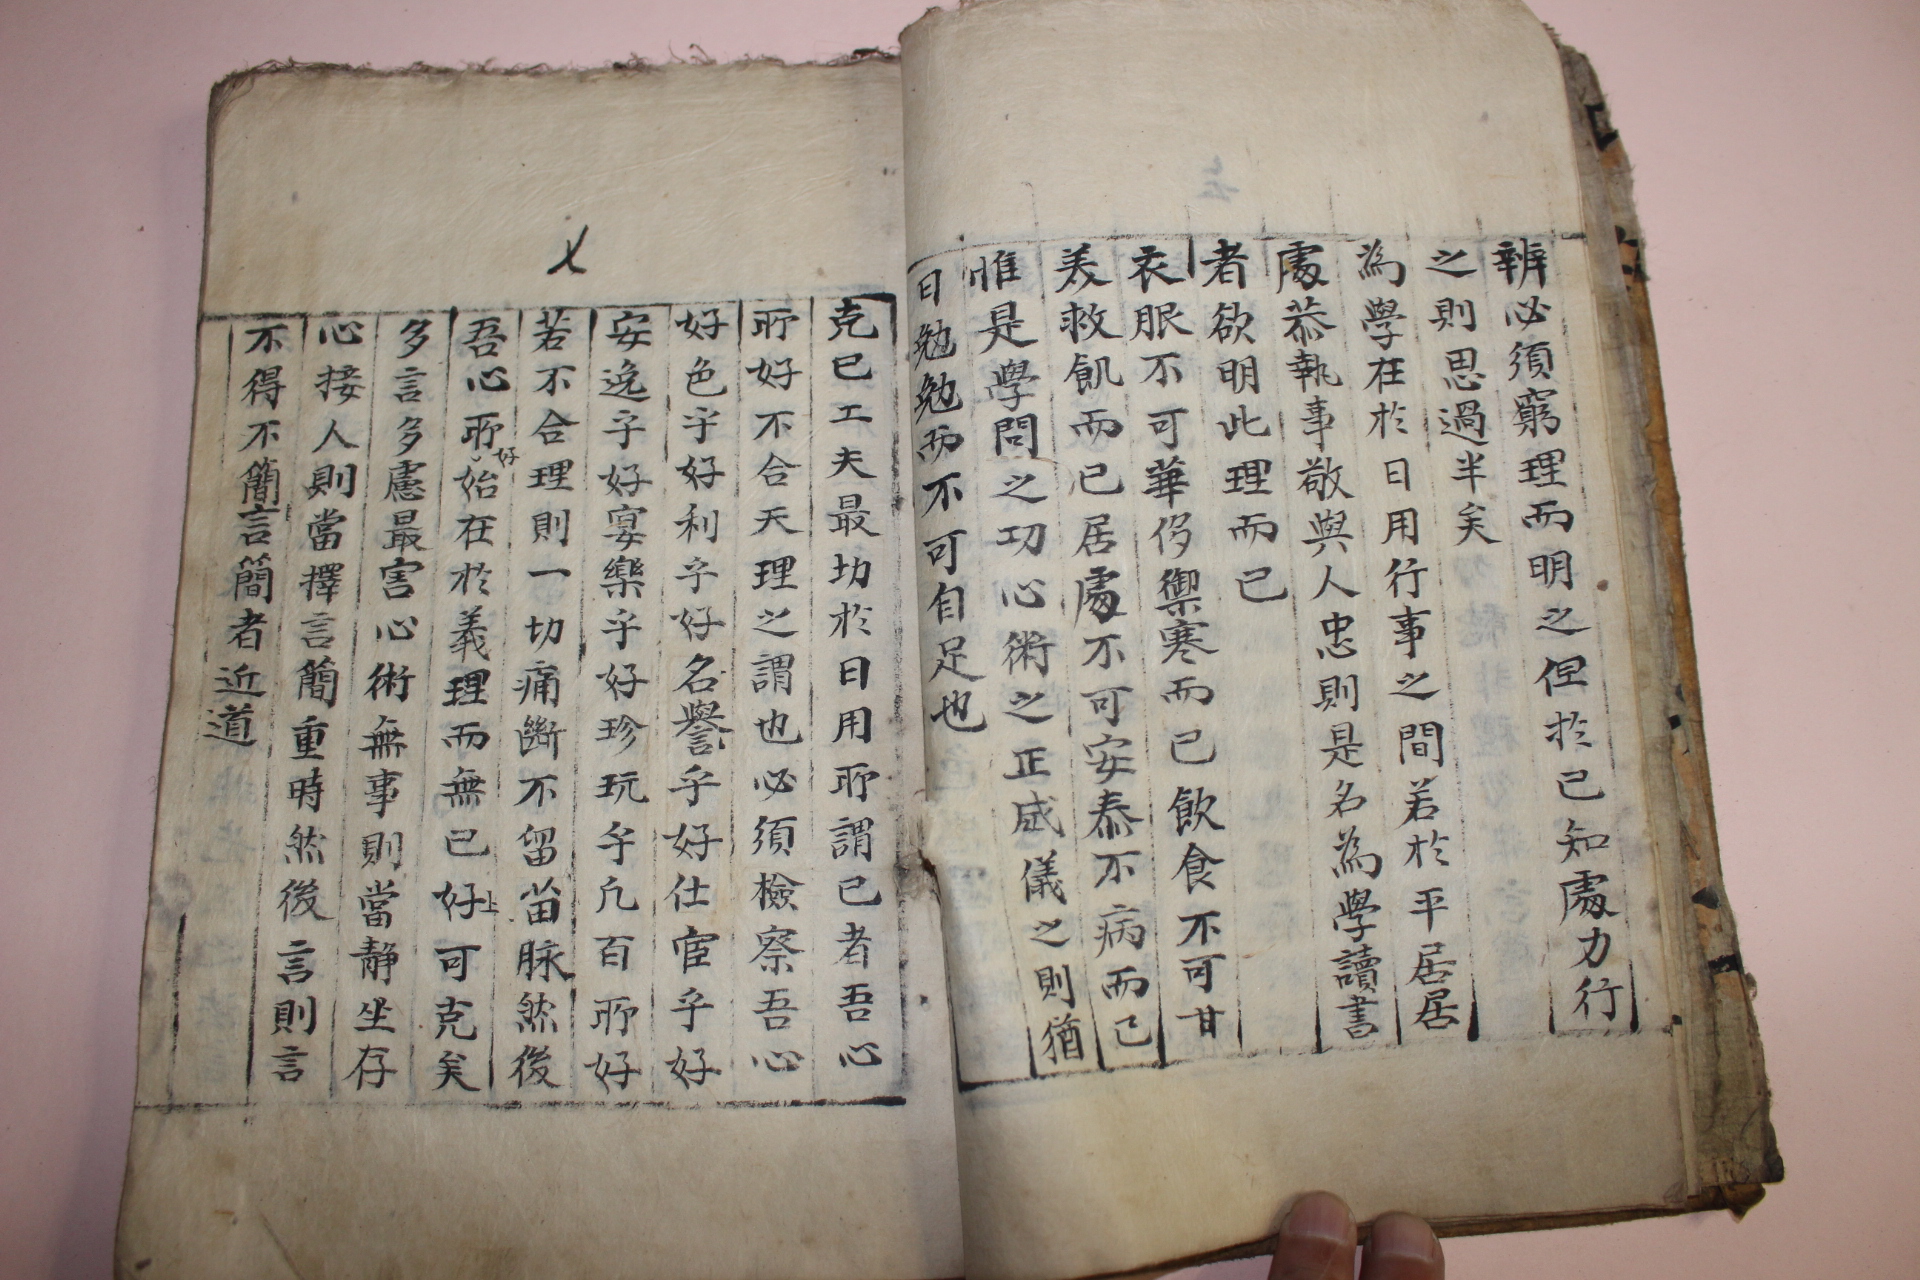 辨必須窮理而明之但於己知處力行
之則思過半矣
為學在於日用行事之間若於平居居
處恭執事敬與人忠則是名為學讀書
者欲明此理而已
衣服不可華侈禦寒而已飮食不可甘
美救飢而已居處不可安泰不病而已
惟是學問之功心術之正威儀之則猶
日勉勉而不可自足也
七
克己工夫最切於日用所謂己者吾心
所好不合天理之謂也必須檢察吾心
好色乎好利乎好名譽乎好仕宦乎好
安逸乎好宴樂乎好珍玩乎凡百所好
若不合理則一切痛斷不留苗脉然後
吾心所好始在於義理而無已上好可克矣
多言多慮最害心術無事則當靜坐存
心接人則當擇言簡重時然後言則言
不得不簡言簡者近道